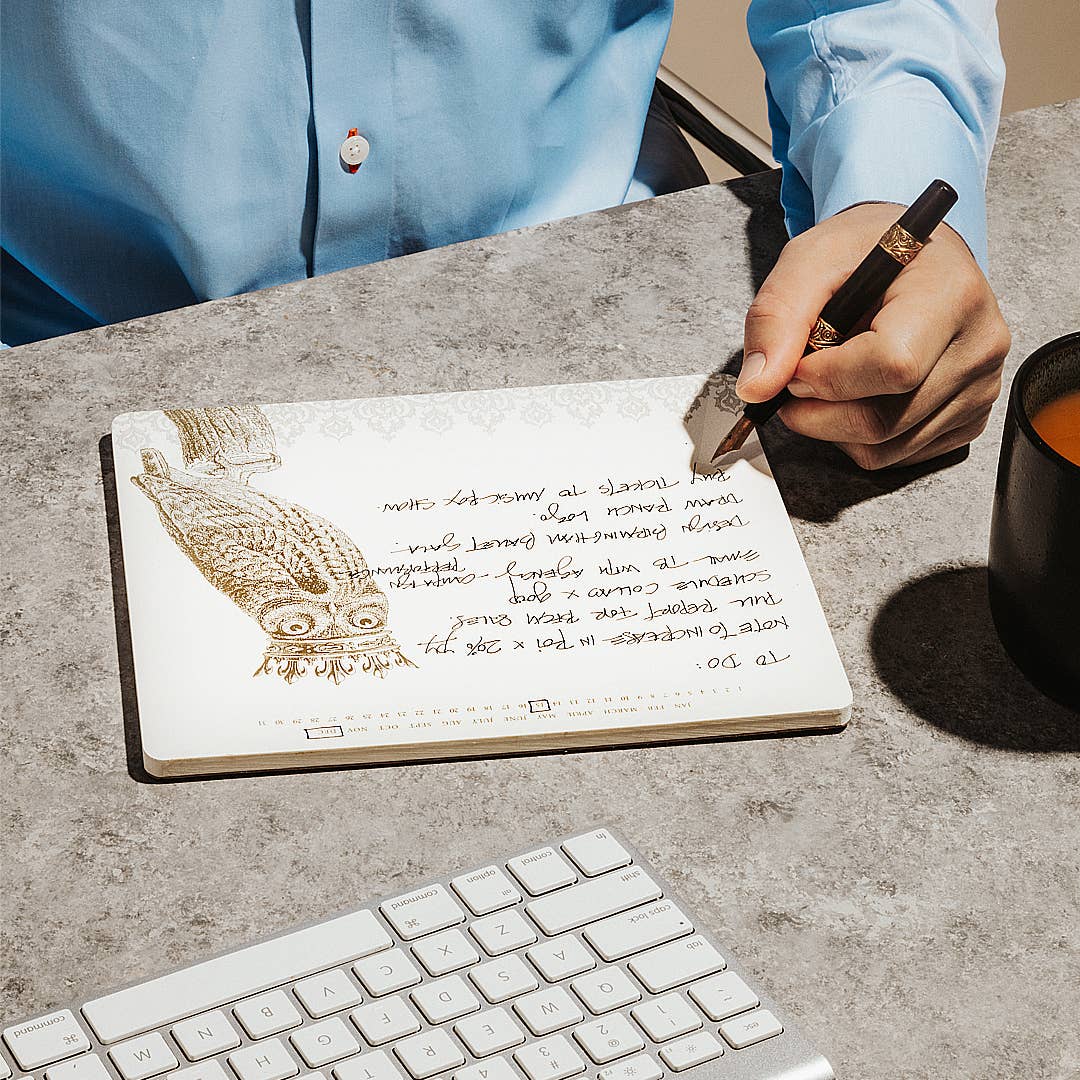 JAN FEB MARCH APRIL MAY JUNE JULY AUG SEPT OCT NOV DEC
1 2 3 4 5 6 7 8 9 10 11 12 13 14 15 16 17 18 19 20 21 22 23 24 25 26 27 28 29 30 31
TO DO:
NOTE TO INCREASE IN ROI x 20% YY
PULL REPORT FOR
SCHEDULE COLLAB x goop
EMAIL TO WITH AGENCY - CAMPAIGN
PERFORMANCE
DESIGN BIRMINGHAM BALLET GALA.
DRAW RANCH LOGO.
BUY TICKETS TO MUSIC BOX SHOW.
esc
~ ! 1 @ 2 # 3 $ 4
tab Q W E R T
caps lock A S D F G H
shift Z X C V B N M
fn control alt option ⌘ command ⌘ command